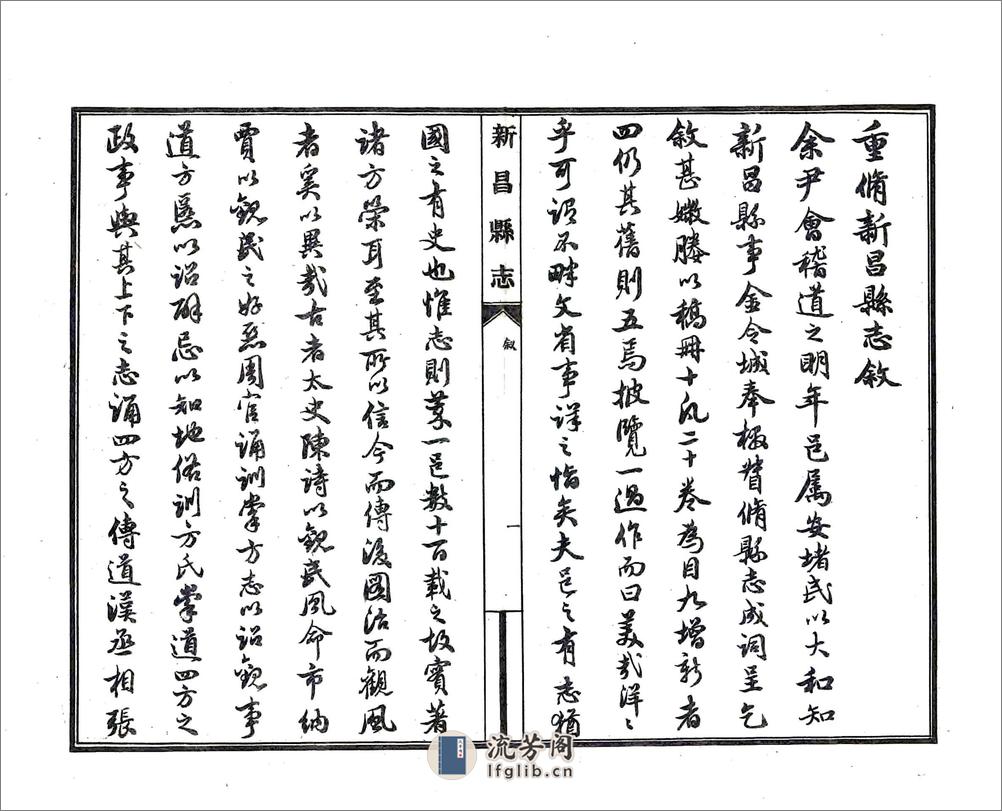 重脩新昌縣志敘
余尹會稽道之明年邑屬安堵民以大和知
新昌縣事金令城奉檄督脩縣志成詞呈乞
敘甚媺賸以稿冊十凡二十卷為目九增新者
四仍其舊則五焉披覽一過作而曰美哉洋〻
乎可謂不畔文省事詳之恉矣夫邑之有志猶
新昌縣志
敘
一
國之有史也惟志則蒐一邑數十百載之故實著
諸方策耳至其所以信今而傳後圖治而觀風
者奚以異哉古者太史陳詩以觀民風命市納
賈以觀民之好惡周官誦訓掌方志以詔觀事
道方慝以詔辟忌以知地俗訓方氏掌道四方之
政事與其上下之志誦四方之傳道漢丞相張
流芳阁
lfglib.cn